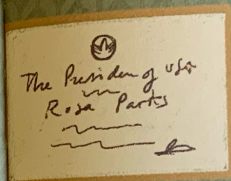 The Presiden of USA
Rosa Parks